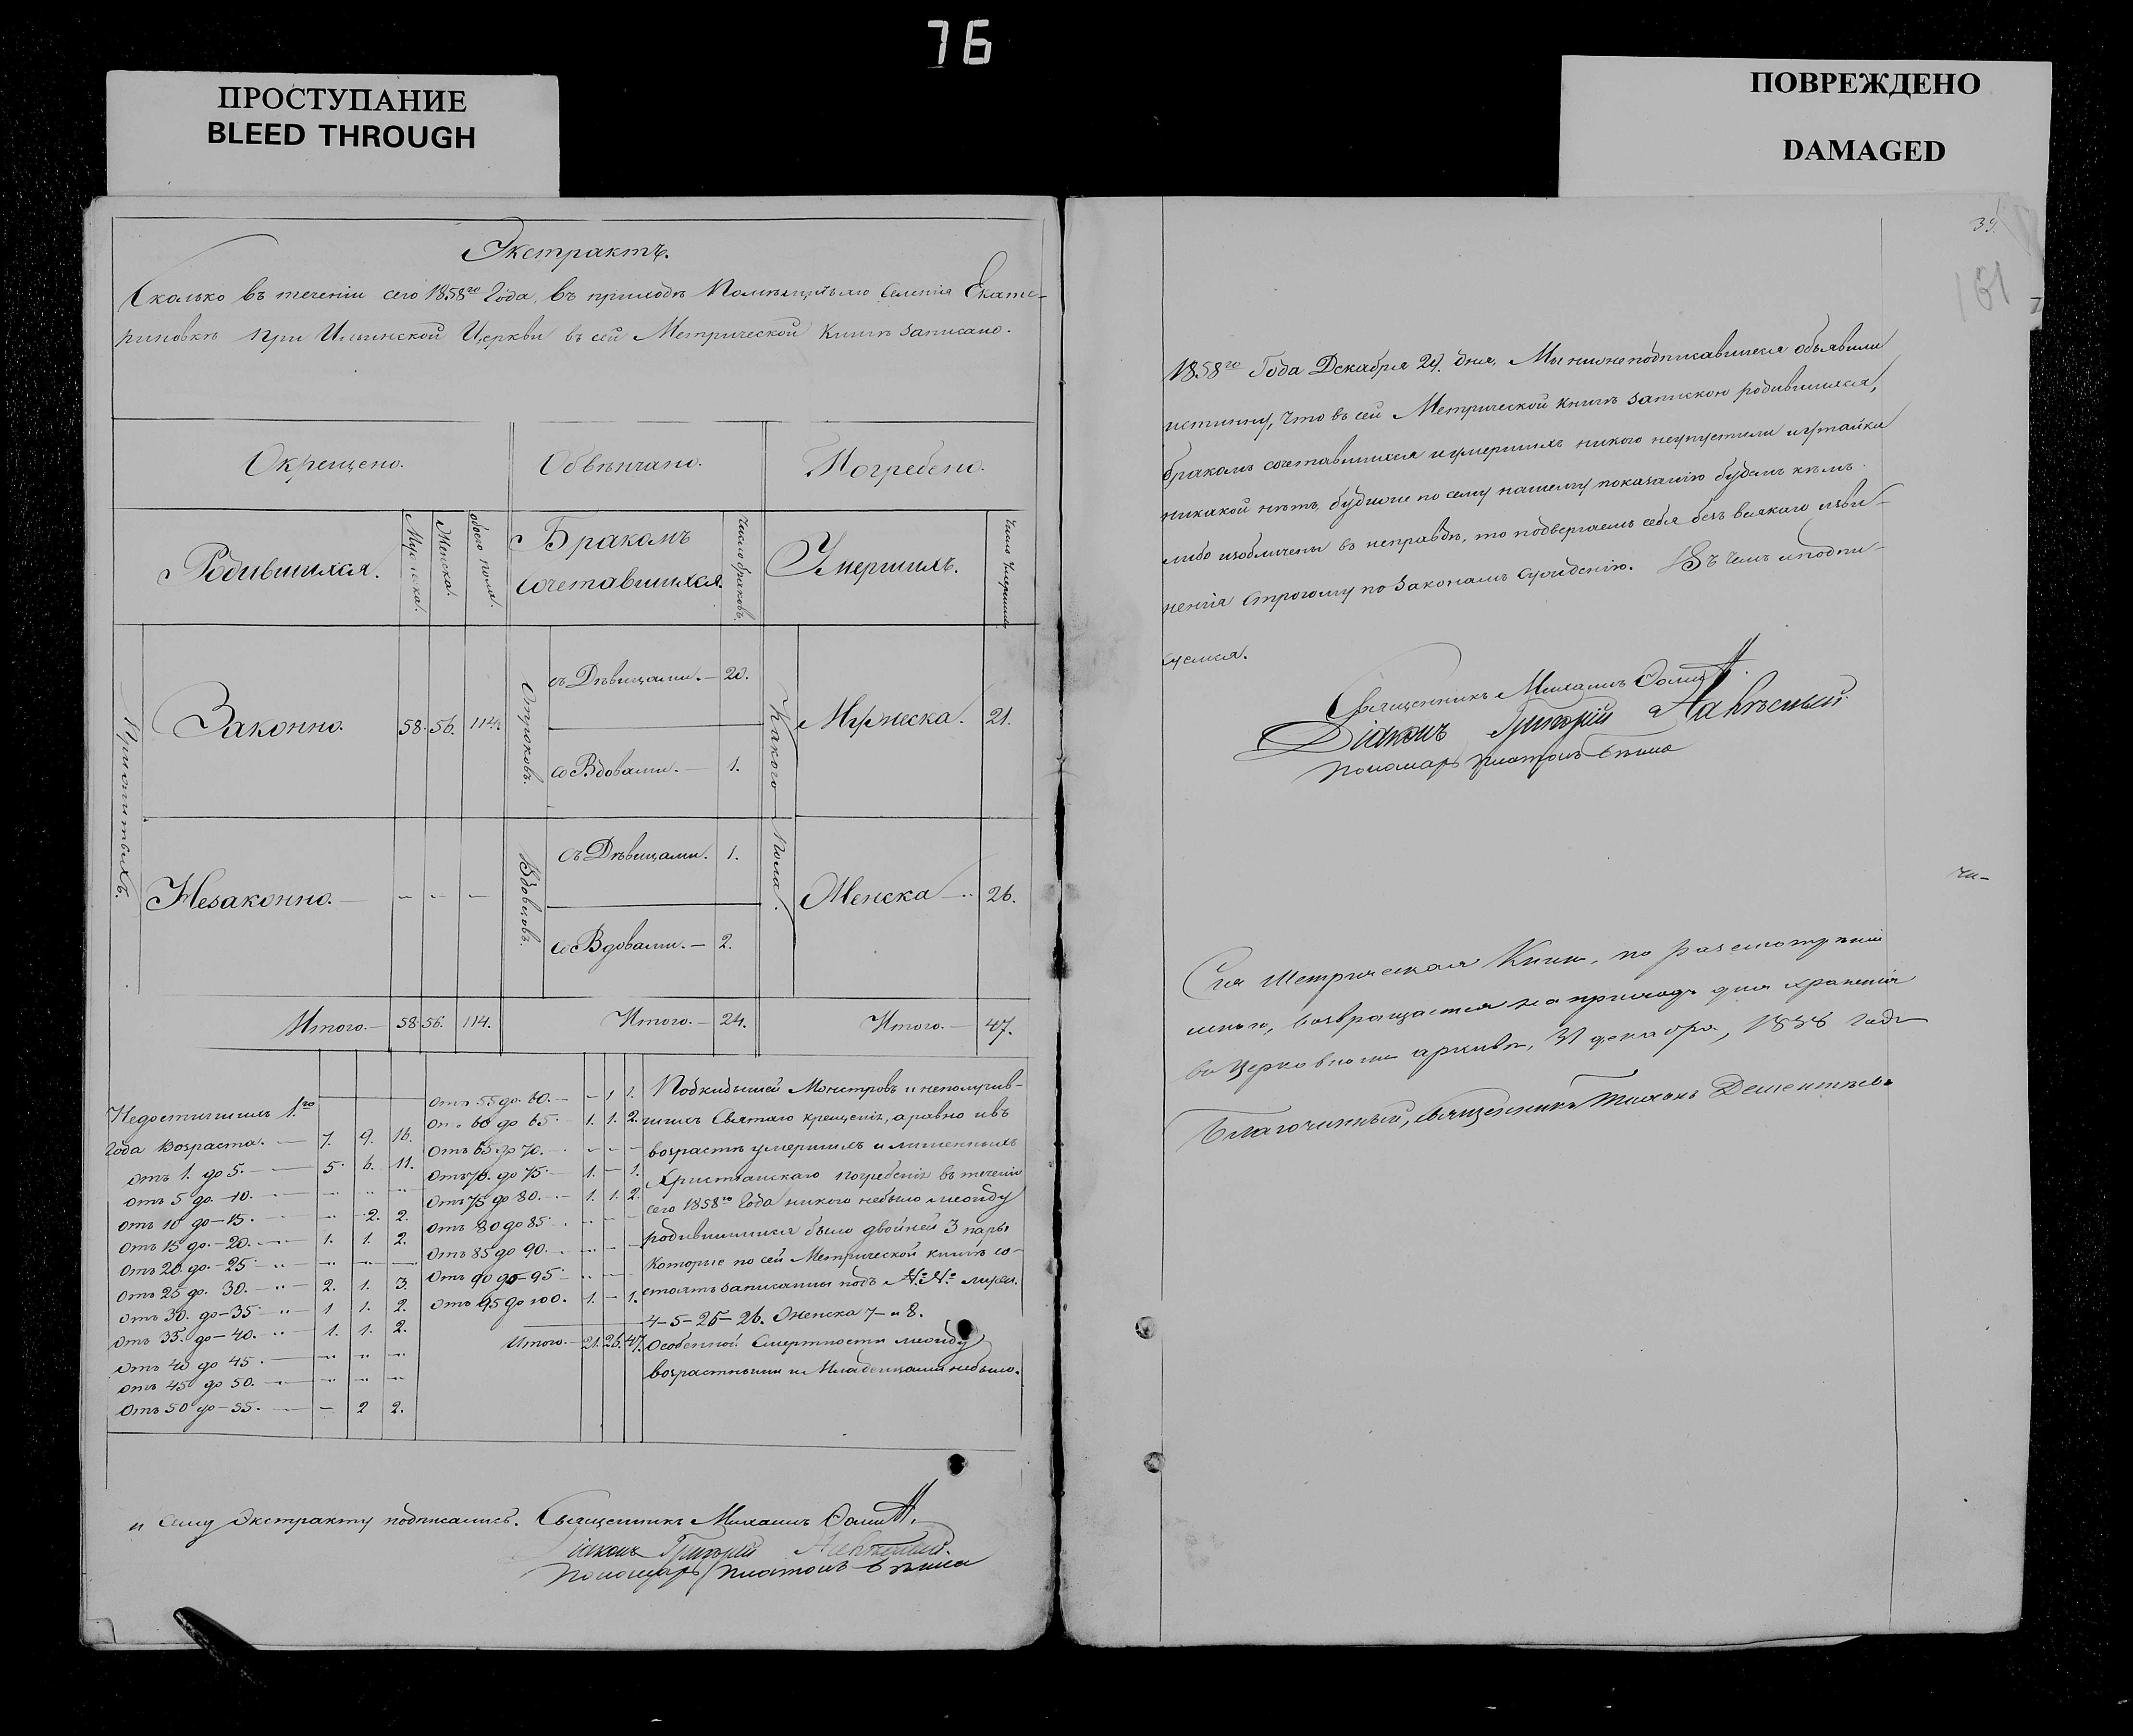 76
ПРОСТУПАНИЕ
BLEED THROUGH
ПОВРЕЖДЕНО
DAMAGED
Экстрактъ.
Сколько въ теченіи сего 1858го Года, въ приходѣ Помѣщичьяго Селенія Екате-
риновкѣ при Ильинской Церкви въ сей Метрической Книгѣ записано.
Окрещено. Обвѣнчано. Погребено.
Родившихся. Мужеска. Женска. обоего пола. Бракомъ сочетавшихся. Число браковъ. Умершихъ. Число Умершихъ.
Законно. 58. 56. 114.
Отроковъ. съ Дѣвицами. — 20.
со Вдовами. — 1.
Какого Пола. Мужеска. 21.
Незаконно. — — — —
Вдовцовъ. съ Дѣвицами. 1.
со Вдовами. — 2.
Женска — 26.
Итого. — 58 56. 114. Итого. — 24. Итого. — 47.
Недостигшихъ 1го
Года Возраста. — 7. 9. 16.
отъ 1. до 5. — 5. 6. 11.
отъ 5 до — 10. — „ „ „
отъ 10 до — 15. — „ 2. 2.
отъ 15 до — 20. — 1. 1. 2.
отъ 20 до — 25. „ — „ „ —
отъ 25 до 30. — „ 2. 1. 3
отъ 30. до — 35 — „ 1 1. 2.
отъ 35. до — 40. — „ 1. 1. 2.
отъ 40 до 45. — „ „ „
отъ 45 до 50. — „ „ „
отъ 50 до — 55. — — 2 2.
отъ 55 до 60. — — 1 1.
отъ 60 до 65. 1. 1. 2.
отъ 65 до 70. — — —
отъ 70. до 75. 1. — 1.
отъ 75 до 80. — 1. 1. 2.
отъ 80 до 85. „ — —
отъ 85 до 90. „ — —
отъ 90 до — 95. „ — —
отъ 95 до 100. 1. — 1.
Итого. — 21. 26. 47.
Подкидышей Монстровъ и неполучив-
шихъ Святаго крещенія, а равно и въ
возрастѣ умершихъ и лишенныхъ
Христіанскаго погребенія въ теченіи
сего 1858го Года никого небыло между
родившимися было двойней 3 пары
которые по сей Метрической книгѣ со-
стоятъ записанны подъ №№ мужск.
4 — 5 — 25 — 26. Женска 7 — и 8.
Особенной Смертности между
возрастными и Младенцами небыло.
и Сему Экстракту подписались. Священникъ Михаилъ
Діаконъ Григорій
Пономарь Платонъ
39.
161
1858го Года Декабря 24. дня, Мы нижеподписавшиеся объявили
истинну, что въ сей Метрической Книгѣ запискою родившихся,
бракомъ сочетавшихся и умершихъ никого неупустили и утайки
никакой нѣтъ, буде же по сему нашему показанію будемъ кѣмъ
либо изобличены въ неправдѣ, то подвергаемъ себя безъ всякаго изви-
ненія Строгому по Законамъ сужденію. Въ чемъ и подпи-
суемся.
Священникъ Михаилъ
Діаконъ Григорій
Пономарь Платонъ
чи-
Сія Метрическая Книга, по разсмотрѣніи
мною, возвращается на приходъ для храненія
въ Церковномъ архивѣ, 31 декабря, 1858 года
Благочинный, Священникъ Тихонъ Дементьевъ